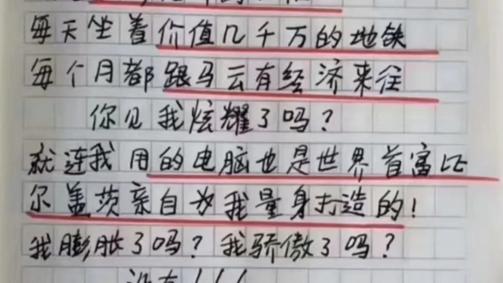 每天坐着价值几千万的地铁
每个月都跟马云有经济来往
你见我炫耀了吗?
就连我用的电脑也是世界首富比
尔盖茨亲自为我量身打造的!
我膨胀了吗?我骄傲了吗?
没有!!!